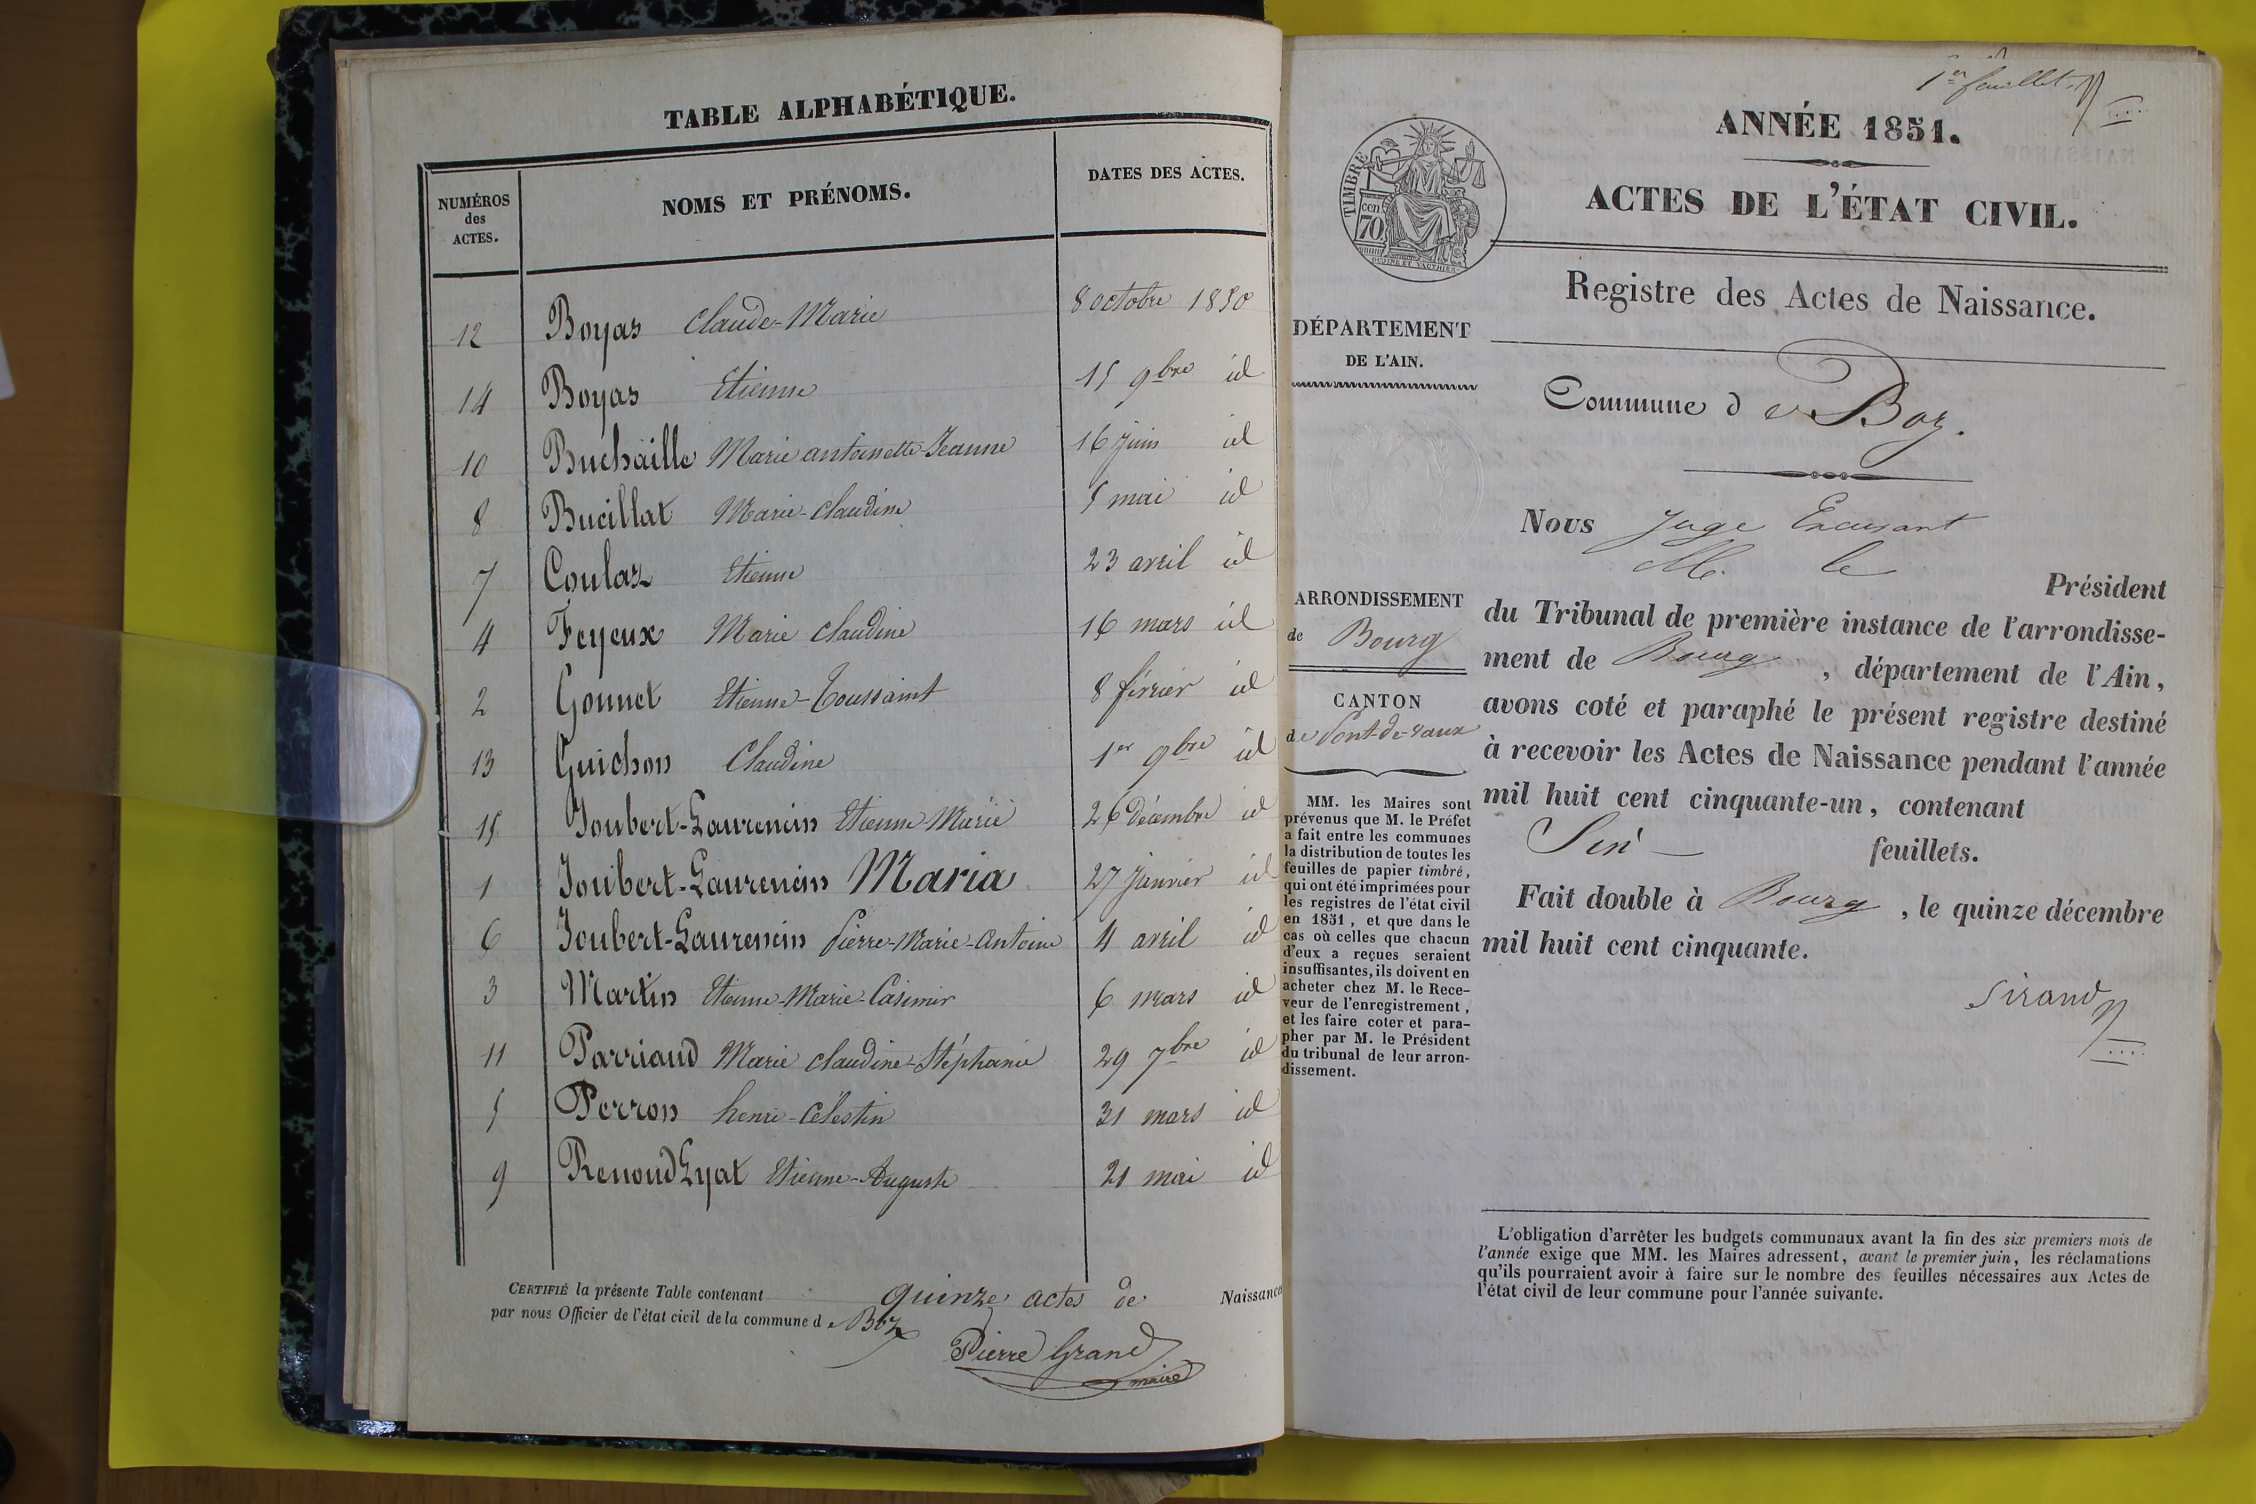 TABLE ALPHABÉTIQUE.
NUMÉROS
des
ACTES.
NOMS ET PRÉNOMS.
DATES DES ACTES.
12 Boyas Claude-Marie 8 octobre 1850
14 Boyas Etienne 15 9bre id
10 Buchaille Marie antoinette-Jeanne 16 juin id
8 Bucillat Marie-Claudine 5 mai id
7 Coulaz Etienne 23 avril id
4 Feyeux Marie Claudine 16 mars id
2 Gonnet Etienne-Toussaint 8 février id
13 Guichon Claudine 1er 9bre id
15 Joubert-Laurencin Etienne-Marie 26 décembre id
1 Joubert-Laurencin Maria 27 janvier id
6 Joubert-Laurencin Pierre-Marie-Antoine 4 avril id
3 Martin Etienne-Marie-Casimir 6 mars id
11 Parriaud Marie Claudine-Stéphanie 29 7bre id
5 Perron henri-Célestin 31 mars id
9 Renoud Lyat Etienne-Auguste 21 mai id
CERTIFIÉ la présente Table contenant quinze actes de Naissance
par nous Officier de l'état civil de la commune de Boz
Pierre Grand
maire
1er feuillet.
ANNÉE 1851.
ACTES DE L'ÉTAT CIVIL.
TIMBRE
70
cen
Registre des Actes de Naissance.
DÉPARTEMENT
DE L'AIN.
Commune de Boz.
ARRONDISSEMENT
de Bourg
CANTON
de Pont-de-vaux
MM. les Maires sont
prévenus que M. le Préfet
a fait entre les communes
la distribution de toutes les
feuilles de papier timbré,
qui ont été imprimées pour
les registres de l'état civil
en 1851, et que dans le
cas où celles que chacun
d'eux a reçues seraient
insuffisantes, ils doivent en
acheter chez M. le Rece-
veur de l'enregistrement,
et les faire coter et para-
pher par M. le Président
du tribunal de leur arron-
dissement.
Nous Juge
M. le Président
du Tribunal de première instance de l'arrondisse-
ment de Bourg, département de l'Ain,
avons coté et paraphé le présent registre destiné
à recevoir les Actes de Naissance pendant l'année
mil huit cent cinquante-un, contenant
feuillets.
Fait double à Bourg, le quinze décembre
mil huit cent cinquante.
Sirand
L'obligation d'arrêter les budgets communaux avant la fin des six premiers mois de
l'année exige que MM. les Maires adressent, avant le premier juin, les réclamations
qu'ils pourraient avoir à faire sur le nombre des feuilles nécessaires aux Actes de
l'état civil de leur commune pour l'année suivante.